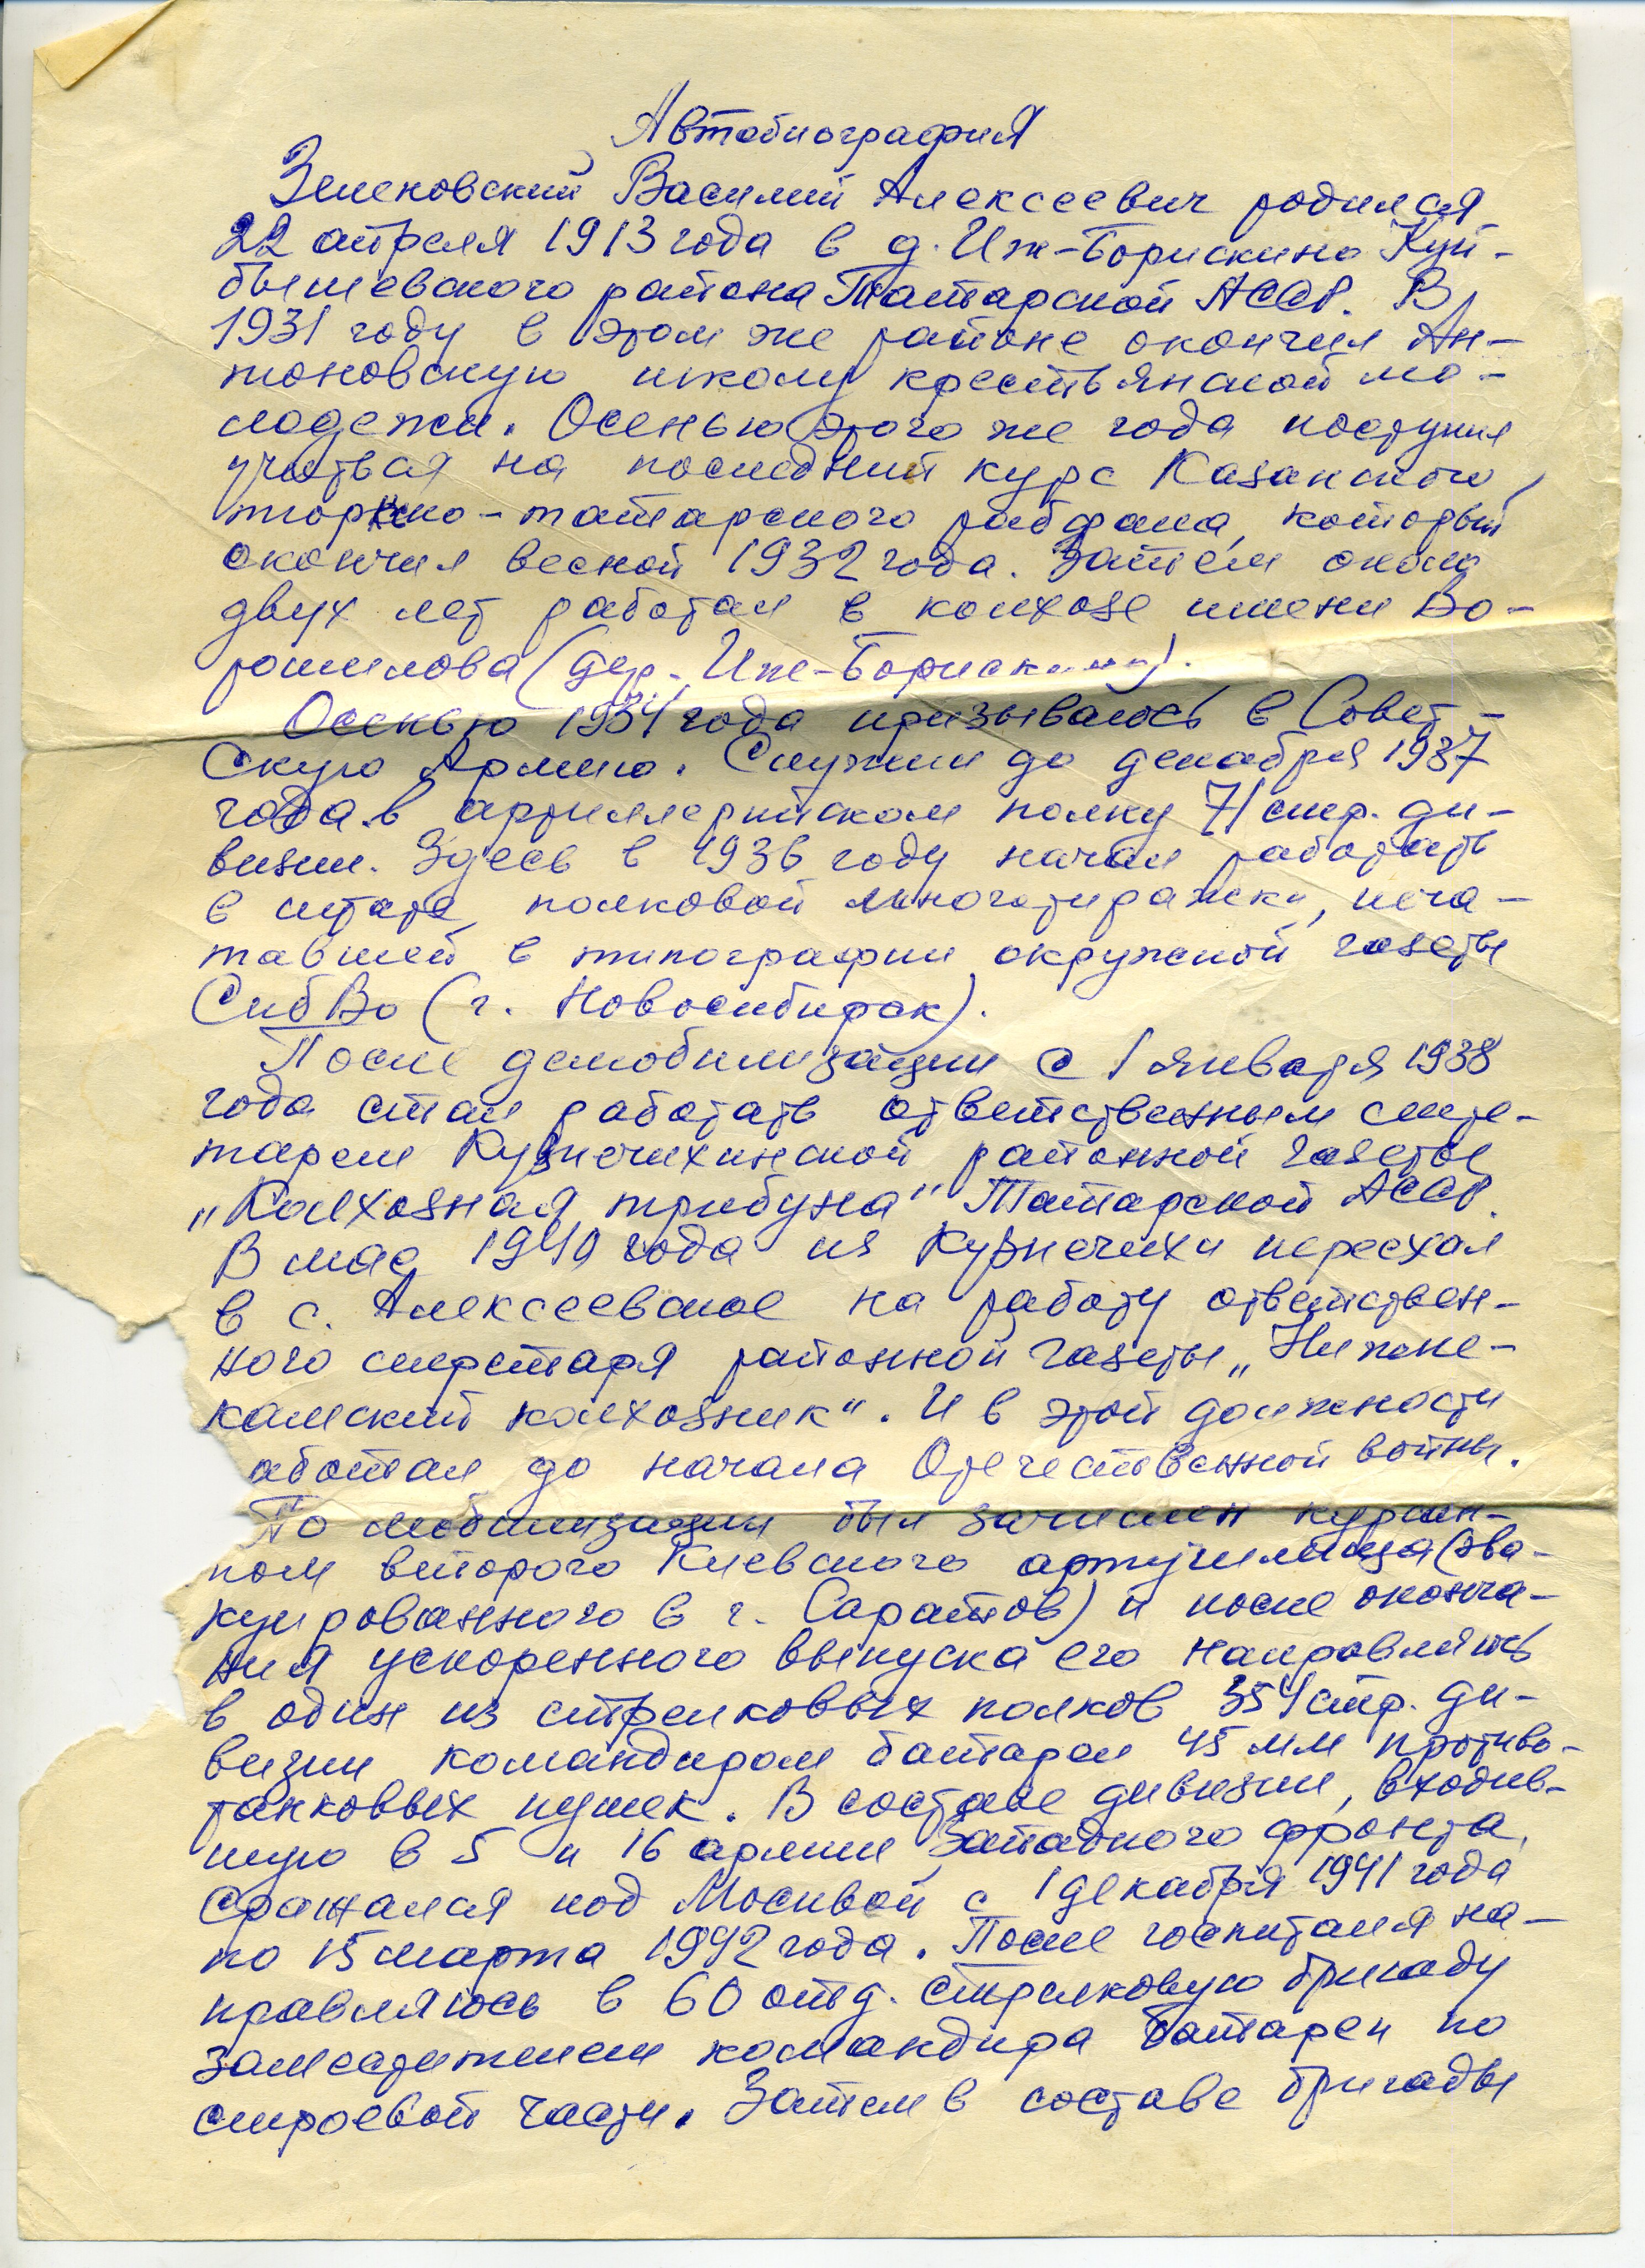 Автобиография
Зеленовский Василий Алексеевич родился
22 апреля 1913 года в д. Иж-Борискино Куй-
бышевского района Татарской АССР. В
1931 году в этом же районе окончил Ан-
тоновскую школу крестьянской мо-
лодежи. Осенью этого же года поступил
учиться на последний курс Казанского
тюркско-татарского рабфака, который
окончил весной 1932 года. Затем около
двух лет работал в колхозе имени Во-
рошилова (дер. Иж-Борискино).
Осенью 1934 года призываюсь в Совет-
скую Армию. Служил до декабря 1937
года в артиллерийском полку 71 стр. ди-
визии. Здесь в 1936 году начал работать
в штате полковой многотиражки, печа-
тавшей в типографии окружной газеты
СибВо (г. Новосибирск).
После демобилизации с 1 января 1938
года стал работать ответственным секре-
тарем Кузнечихинской районной газеты
„Колхозная трибуна" Татарской АССР.
В мае 1940 года из Кузнечихи переехал
в с. Алексеевское на работу ответствен-
ного секретаря районной газеты „Нижне-
камский колхозник". И в этой должности
аботал до начала Отечественной войны.
По мобилизации был зачислен курсан-
том второго Киевского артучилища (эва-
куированного в г. Саратов) и после оконча-
ния ускоренного выпуска его направляюсь
в один из стрелковых полков 354 стр. ди-
визии командиром батареи 45 мм противо-
танковых пушек. В составе дивизии, входив-
шую в 5 и 16 армии Западного фронта,
сражался под Москвой с 1 декабря 1941 года
по 15 марта 1942 года. После госпиталя на-
правляюсь в 60 отд. стрелковую бригаду
заместителем командира батареи по
строевой части. Затем в составе бригады